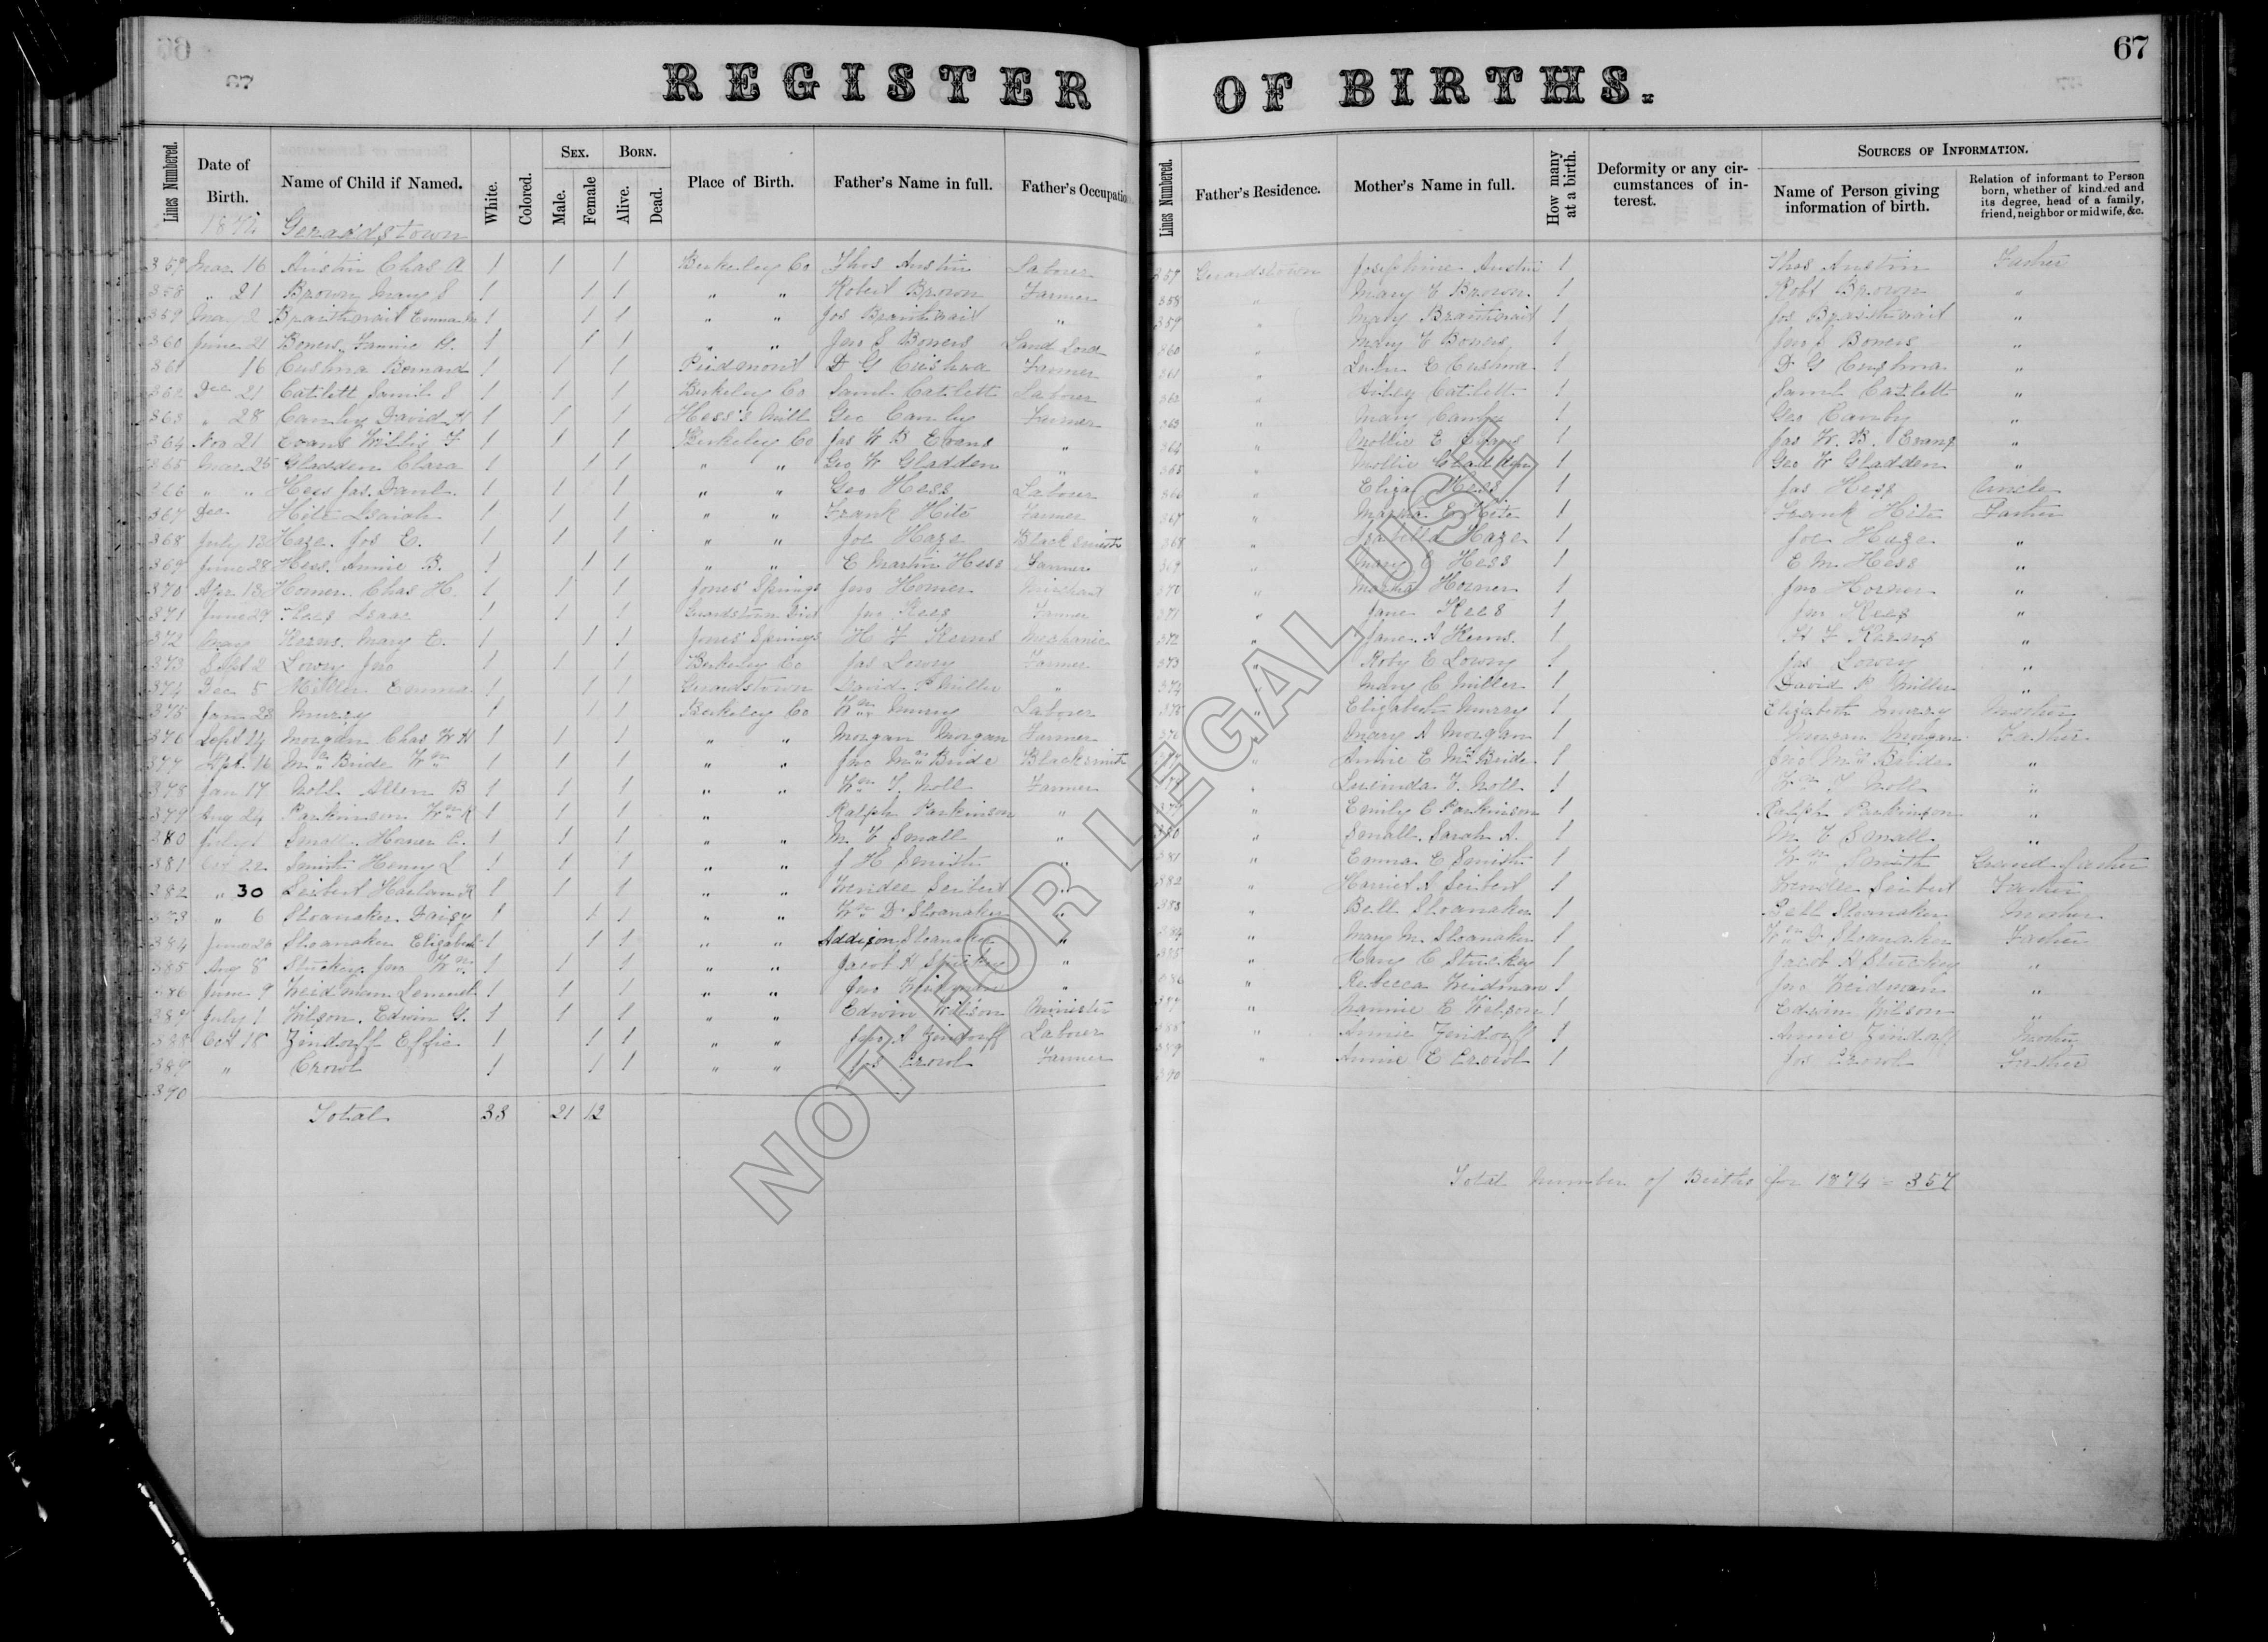 67
REGISTER OF BIRTHS.
Lines Numbered. Date of Birth. Name of Child if Named. White. Colored. Sex. Male. Female Born. Alive. Dead. Place of Birth. Father's Name in full. Father's Occupation Lines Numbered. Father's Residence. Mother's Name in full. How many at a birth. Deformity or any circumstances of interest. Sources of Information. Name of Person giving information of birth. Relation of informant to Person born, whether of kindred and its degree, head of a family, friend, neighbor or midwife, &c.
Gerardstown
357 Mar. 16 Austin Chas A 1 1 1 Berkeley Co Thos Austin Laborer 357 Gerardstown Josephine Austin 1 Thos Austin Father
358 " 21 Brown Mary S 1 1 1 " " Robert Brown Farmer 358 " Mary E Brown 1 Robt Brown "
359 May 2 Emma 1 1 1 " " Jos " 359 " Mary 1 Jos "
360 June 21 Bowers, Fannie 1 1 1 " " Jno S Bowers Land Lord 360 " Mary Bowers 1 Jno S Bowers "
361 16 Cushwa Bernard 1 1 1 Piedmont D G Cushwa Farmer 361 " E Cushwa 1 D G Cushwa "
362 Dec 21 Catlett Saml S 1 1 1 Berkeley Co Saml Catlett Laborer 362 " Catlett 1 Saml Catlett "
363 " 28 Canby David H 1 1 1 Hess's Mill Geo Canby Farmer 363 " Mary Canby 1 Geo Canby "
364 Nov 21 Evans Willis F 1 1 1 Berkeley Co Jas W B Evans " 364 " Mollie E Evans 1 Jas W. B. Evans "
365 Mar. 25 Gladden Clara 1 1 1 " " Geo W Gladden " 365 " Mollie Gladden 1 Geo W Gladden "
366 " " Hess Jas. Danl. 1 1 1 " " Geo Hess Laborer 366 " Eliza Hess 1 Jas Hess Uncle
367 Dec Hite Isaiah 1 1 1 " " Frank Hite Farmer 367 " Martha E Hite 1 Frank Hite Father
368 July 13 Haze. Jos E. 1 1 1 " " Joe Haze Blacksmith 368 " Isabella Haze 1 Joe Haze "
369 June 28 Hess. Annie B. 1 1 1 " " E Martin Hess Farmer 369 " Mary C Hess 1 E M. Hess "
370 Apr. 13 Horner. Chas H. 1 1 1 Jones' Springs Jno Horner Merchant 370 " Martha Horner 1 Jno Horner "
371 June 29 Kees Isaac 1 1 1 Gerardstown Dist Jno Kees Farmer 371 " Jane Kees 1 Jno Kees "
372 May Kerns. Mary E. 1 1 1 Jones' Springs H F Kerns Mechanic 372 " Jane. A Kerns. 1 H F Kerns "
373 Sept 2 Lowry Jno 1 1 1 Berkeley Co Jas Lowry Farmer 373 " Roby E Lowry 1 Jas Lowry "
374 Dec 5 Miller Emma 1 1 1 Gerardstown David P Miller " 374 " Mary C Miller 1 David P Miller "
375 Jan 23 Murry 1 1 1 Berkeley Co Wm Murry Laborer 375 " Elizabeth Murry 1 Elizabeth Murry Mother
376 Sept 14 Morgan Chas W H 1 1 1 " " Morgan Morgan Farmer 376 " Mary A Morgan 1 Morgan Morgan Father
377 Sept. 16 Mc Bride Wm 1 1 1 " " Jno Mc Bride Blacksmith 377 " Annie E Mc Bride 1 Jno Mc Bride "
378 Jan 17 Noll Allen B 1 1 1 " " Wm T. Noll Farmer 378 " Lucinda F. Noll 1 Wm T Noll "
379 Aug 24 Parkinson Wm R 1 1 1 " Ralph Parkinson " 379 " Emily C Parkinson 1 Ralph Parkinson "
380 July 1 Small. Homer C. 1 1 1 " " M. Small " 380 " Small. Sarah A. 1 M Small "
381 Oct 22 Smith Henry L 1 1 1 " " J H Smith " 381 " Emma E Smith 1 Wm Smith Grand father
382 " 30 Seibert Harlan R 1 1 1 " " Wendle Seibert " 382 " Harriet A Seibert 1 Wendle Seibert Father
373 " 6 Sloanaker Daisy 1 1 1 " " Wm D. Sloanaker " 383 " Bell Sloanaker 1 Bell Sloanaker Mother
384 June 20 Sloanaker Elizabeth 1 1 1 " " Addison Sloanaker " 384 " Mary M. Sloanaker 1 Wm D Sloanaker Father
385 Aug 8 Stuckey Jno Wm 1 1 1 " " Jacob H Stuckey " 385 " Mary C Stuckey 1 Jacob H Stuckey "
386 June 9 Weidman Lemuel 1 1 1 " " Jno Weidman " 386 " Rebecca Weidman 1 Jno Weidman "
387 July 1 Wilson. Edwin G. 1 1 1 " " Edwin Wilson Minister 387 " Nannie E Wilson 1 Edwin Wilson "
388 Oct 18 Zindorff Effie 1 1 1 " " Jno A Zindorff Laborer 388 " Annie Zindorff 1 Annie Zindorff Mother
389 " Crowl 1 1 1 " " Jos Crowl Farmer 389 " Annie E Crowl 1 Jos Crowl Father
390 390
Total 33 21 12
Total number of Births for 1874 = 357
NOT FOR LEGAL USE